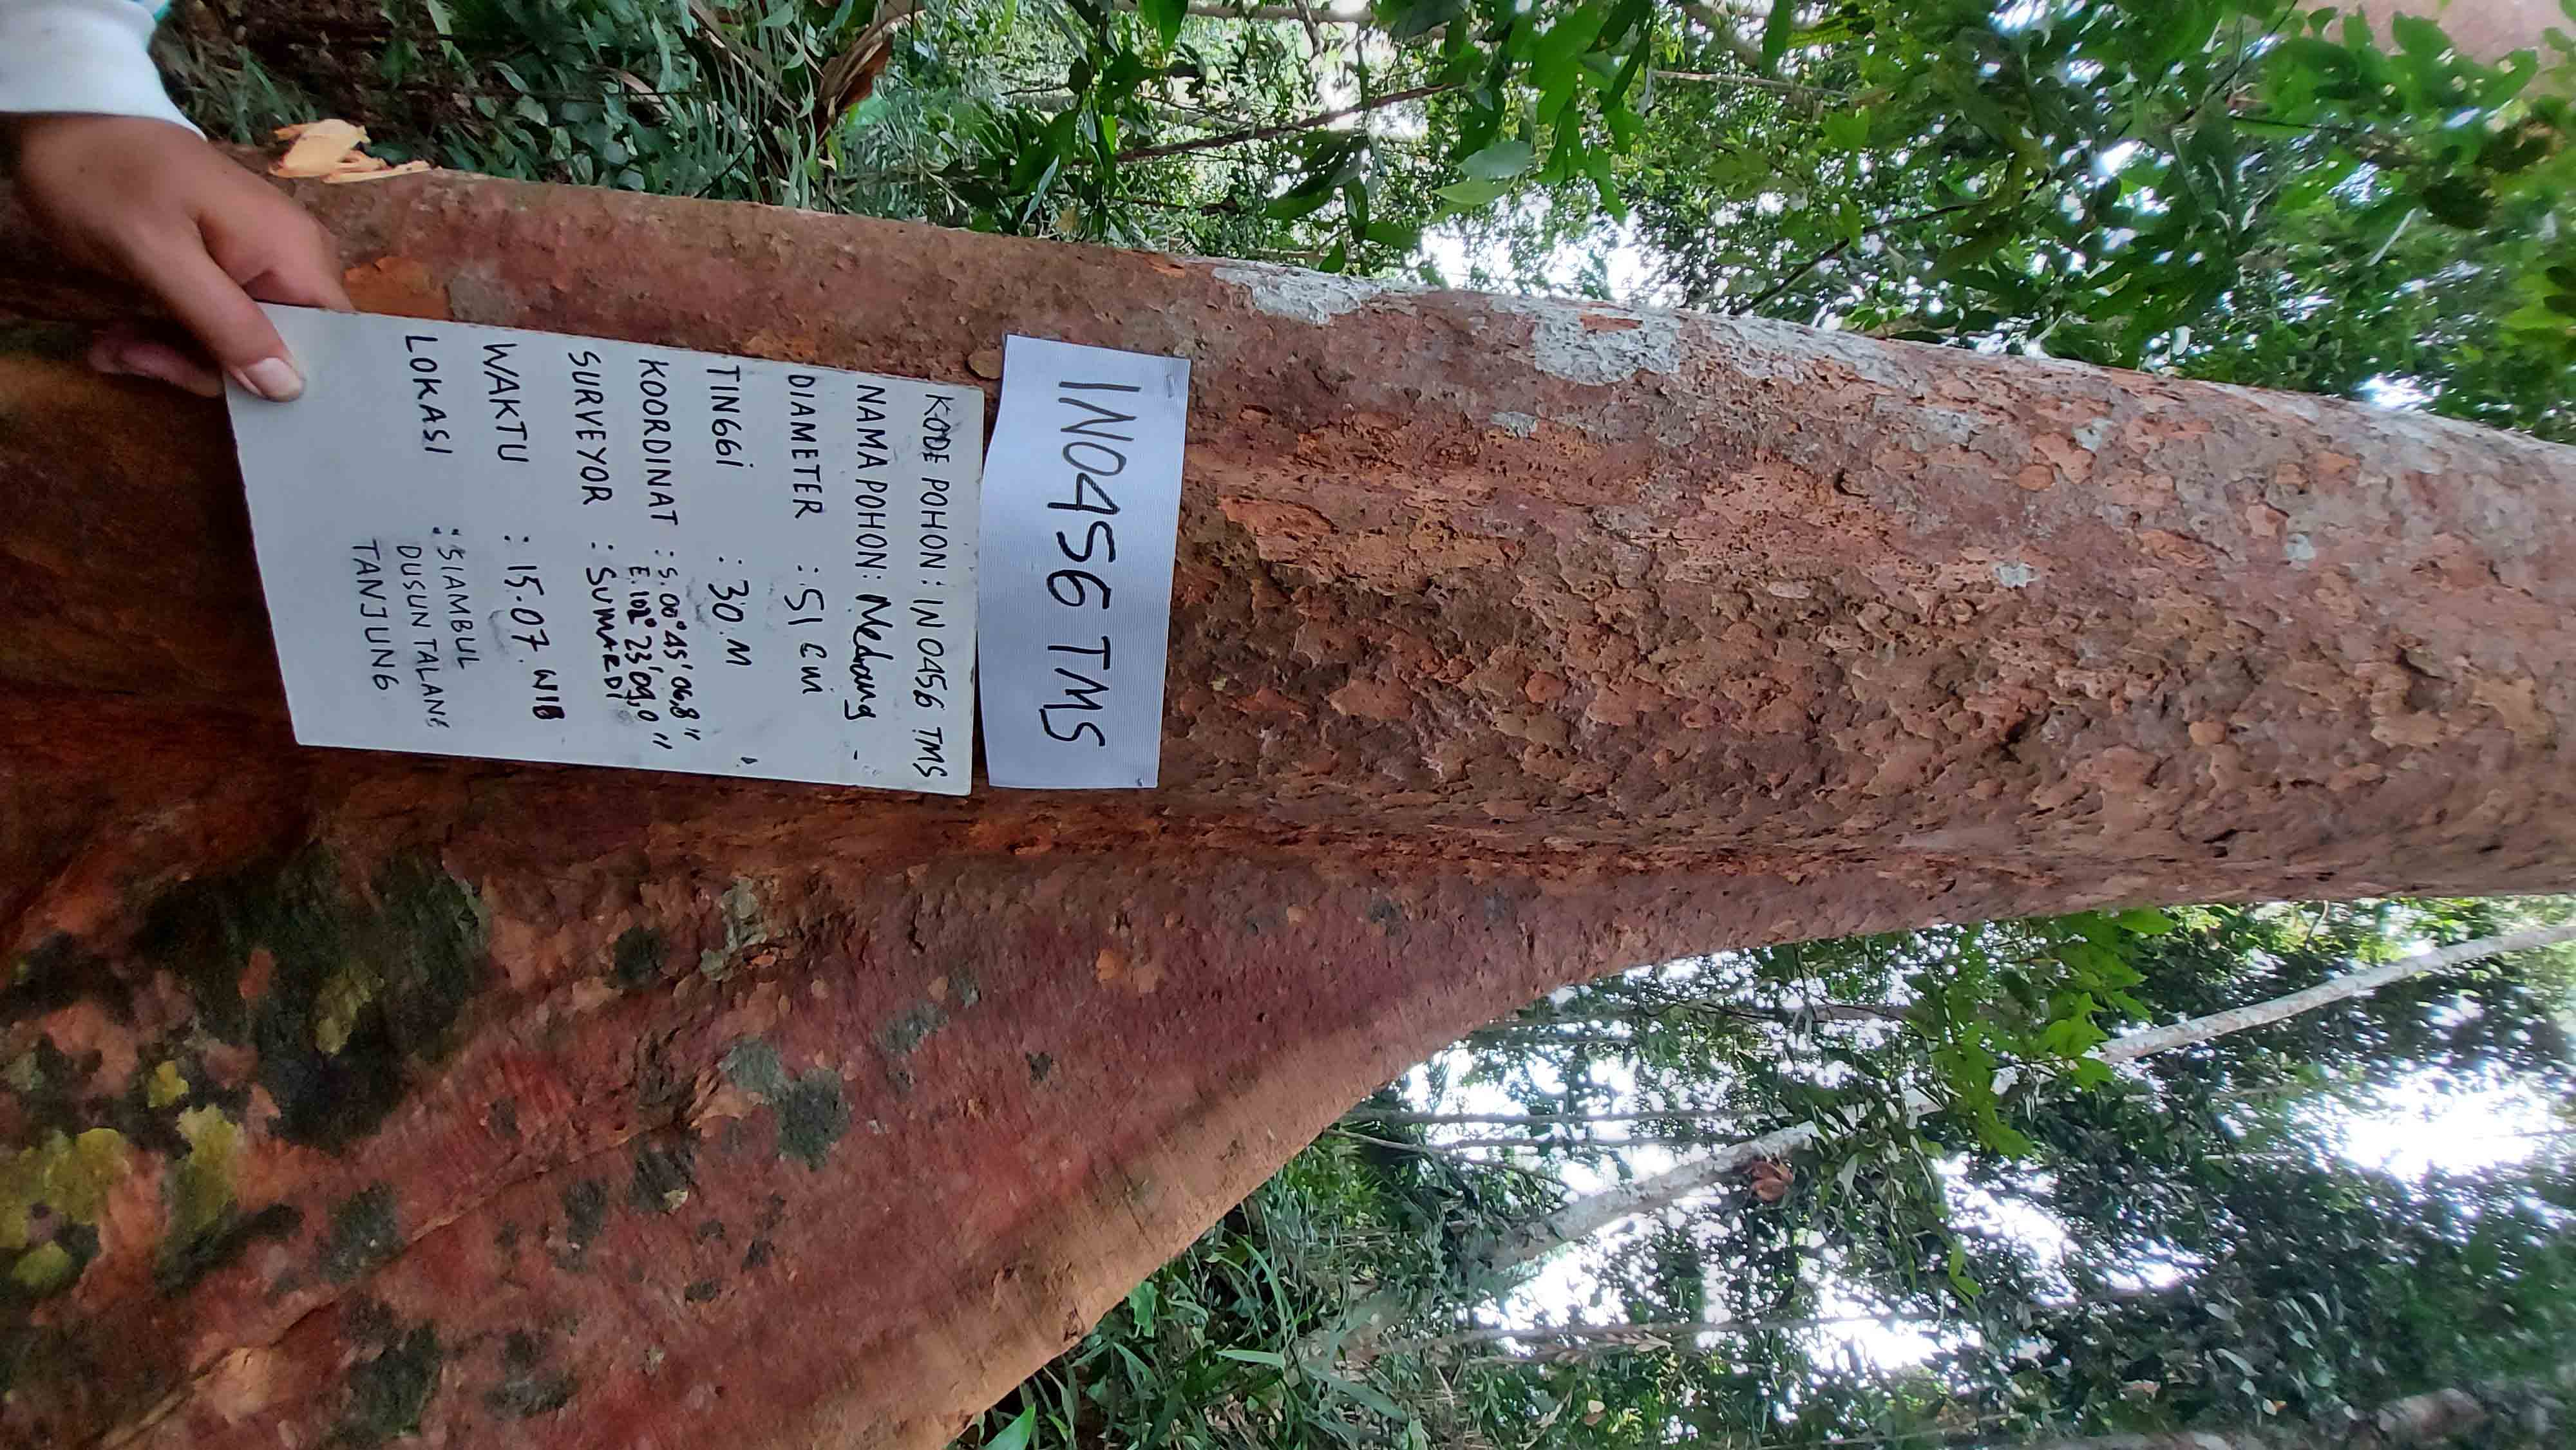 IN0456 TMS
KODE POHON: IN 0456 TMS
NAMA POHON: Medang -
DIAMETER : 51 cm
TINGGI : 30 M
KOORDINAT : S. 00° 45' 06,8"
E. 102° 23' 09,0"
SURVEYOR : SUMARDI
WAKTU : 15.07. WIB
LOKASI : SIAMBUL
DUSUN TALANG
TANJUNG